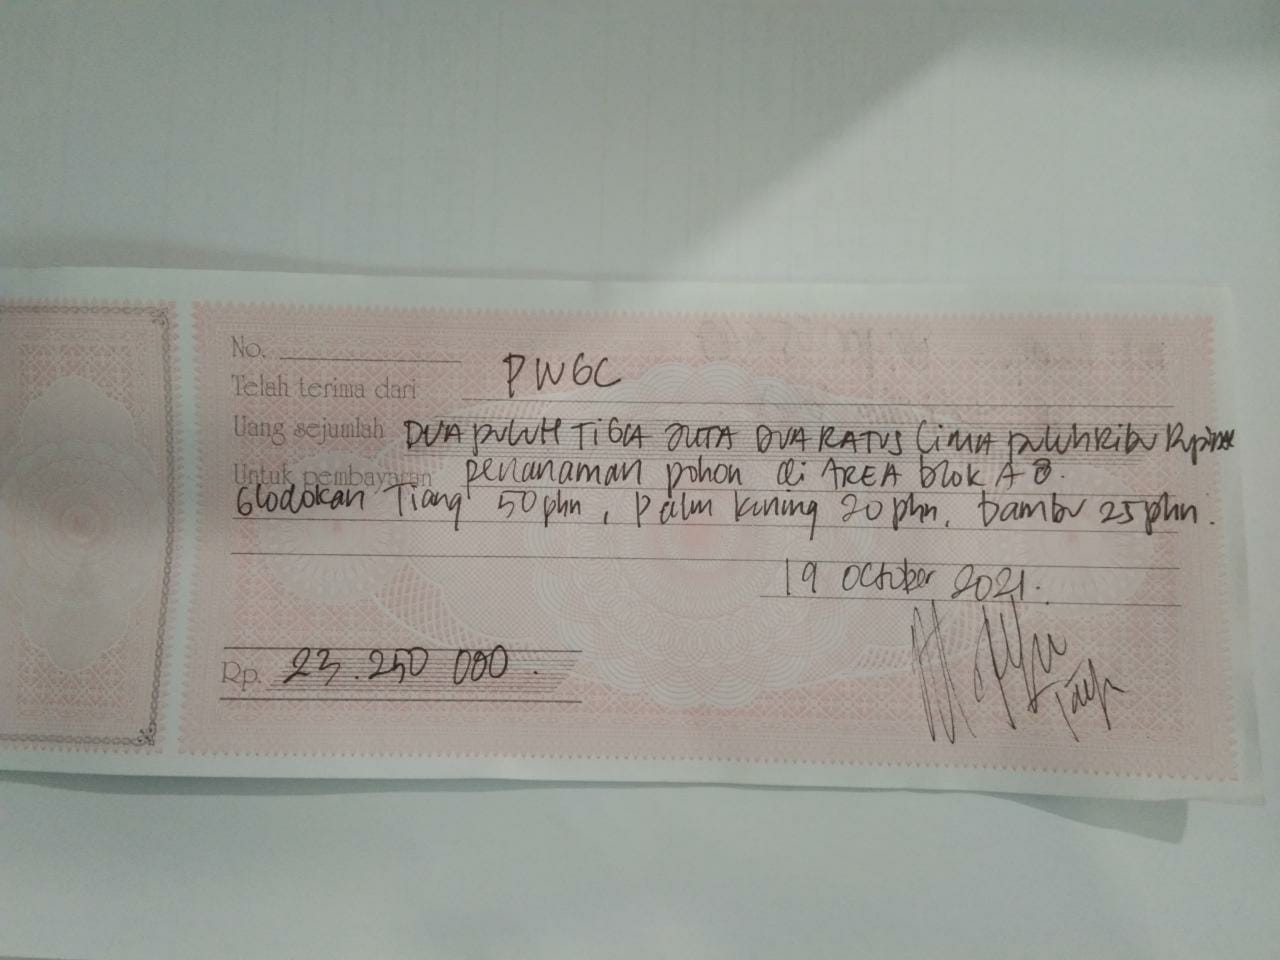 No.
Telah terima dari PWGC
Uang sejumlah DUA puluH TiGA JUTA DUA RATUS LimA puluh Ribu Rupiah
Untuk pembayaran penanaman pohon di AREA blok A 8.
Glodokan Tiang 50 phn, palm kuning 20 phn, bambu 25 phn.
19 October 2021.
Rp. 23.250 000.